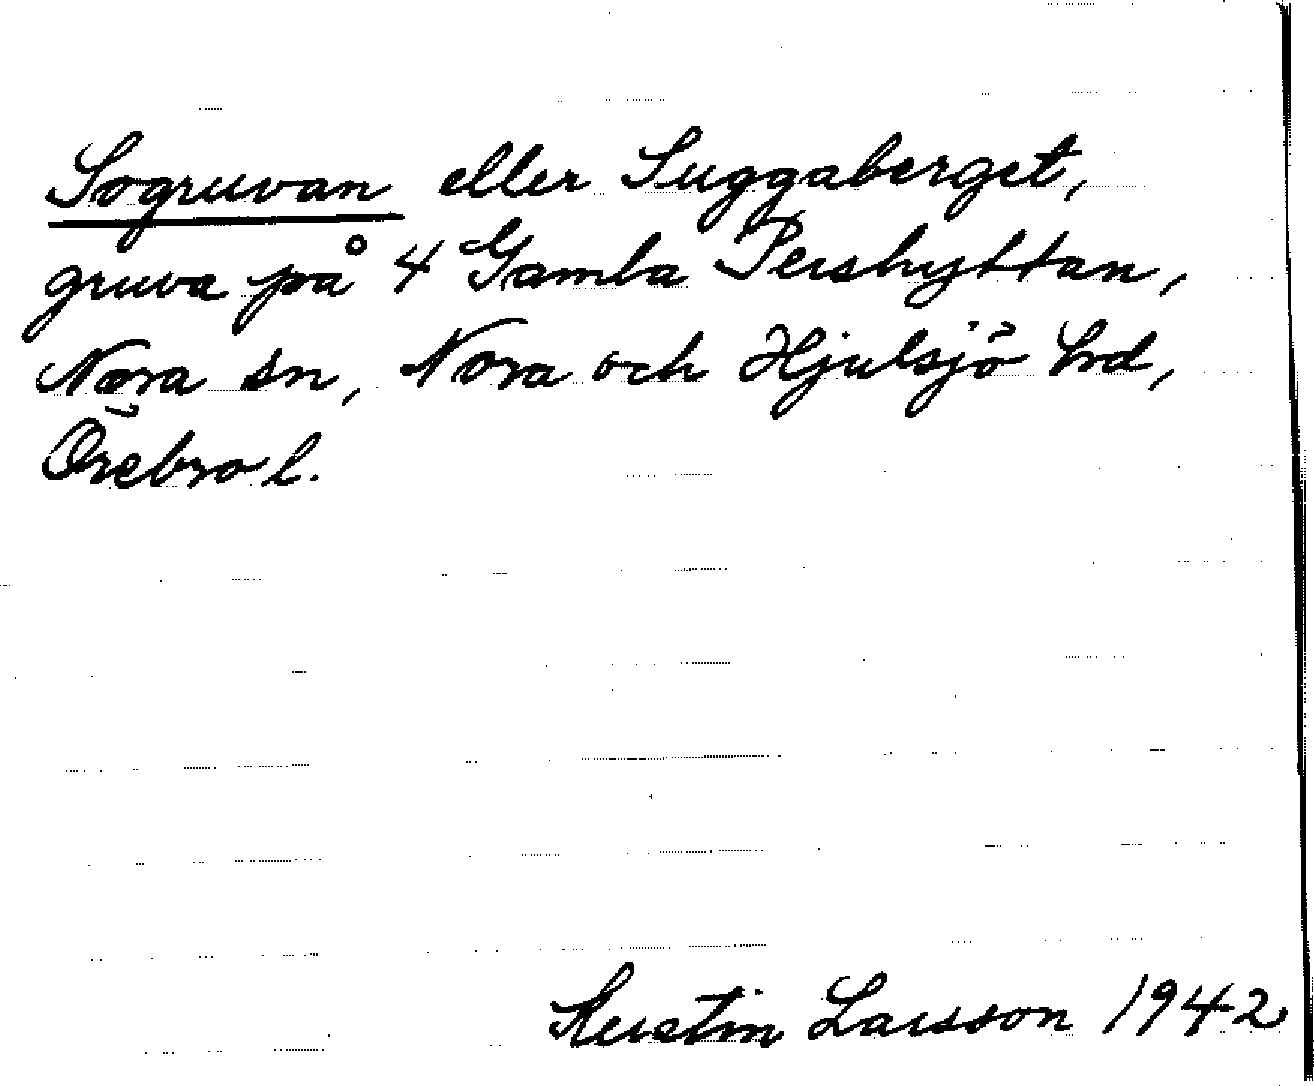 Sogruvan eller Suggaberget,
gruva på 4 Gamla Pershyttan,
Nora sn, Nora och Hjulsjö bd,
Örebro l.
Kerstin Larsson 1942